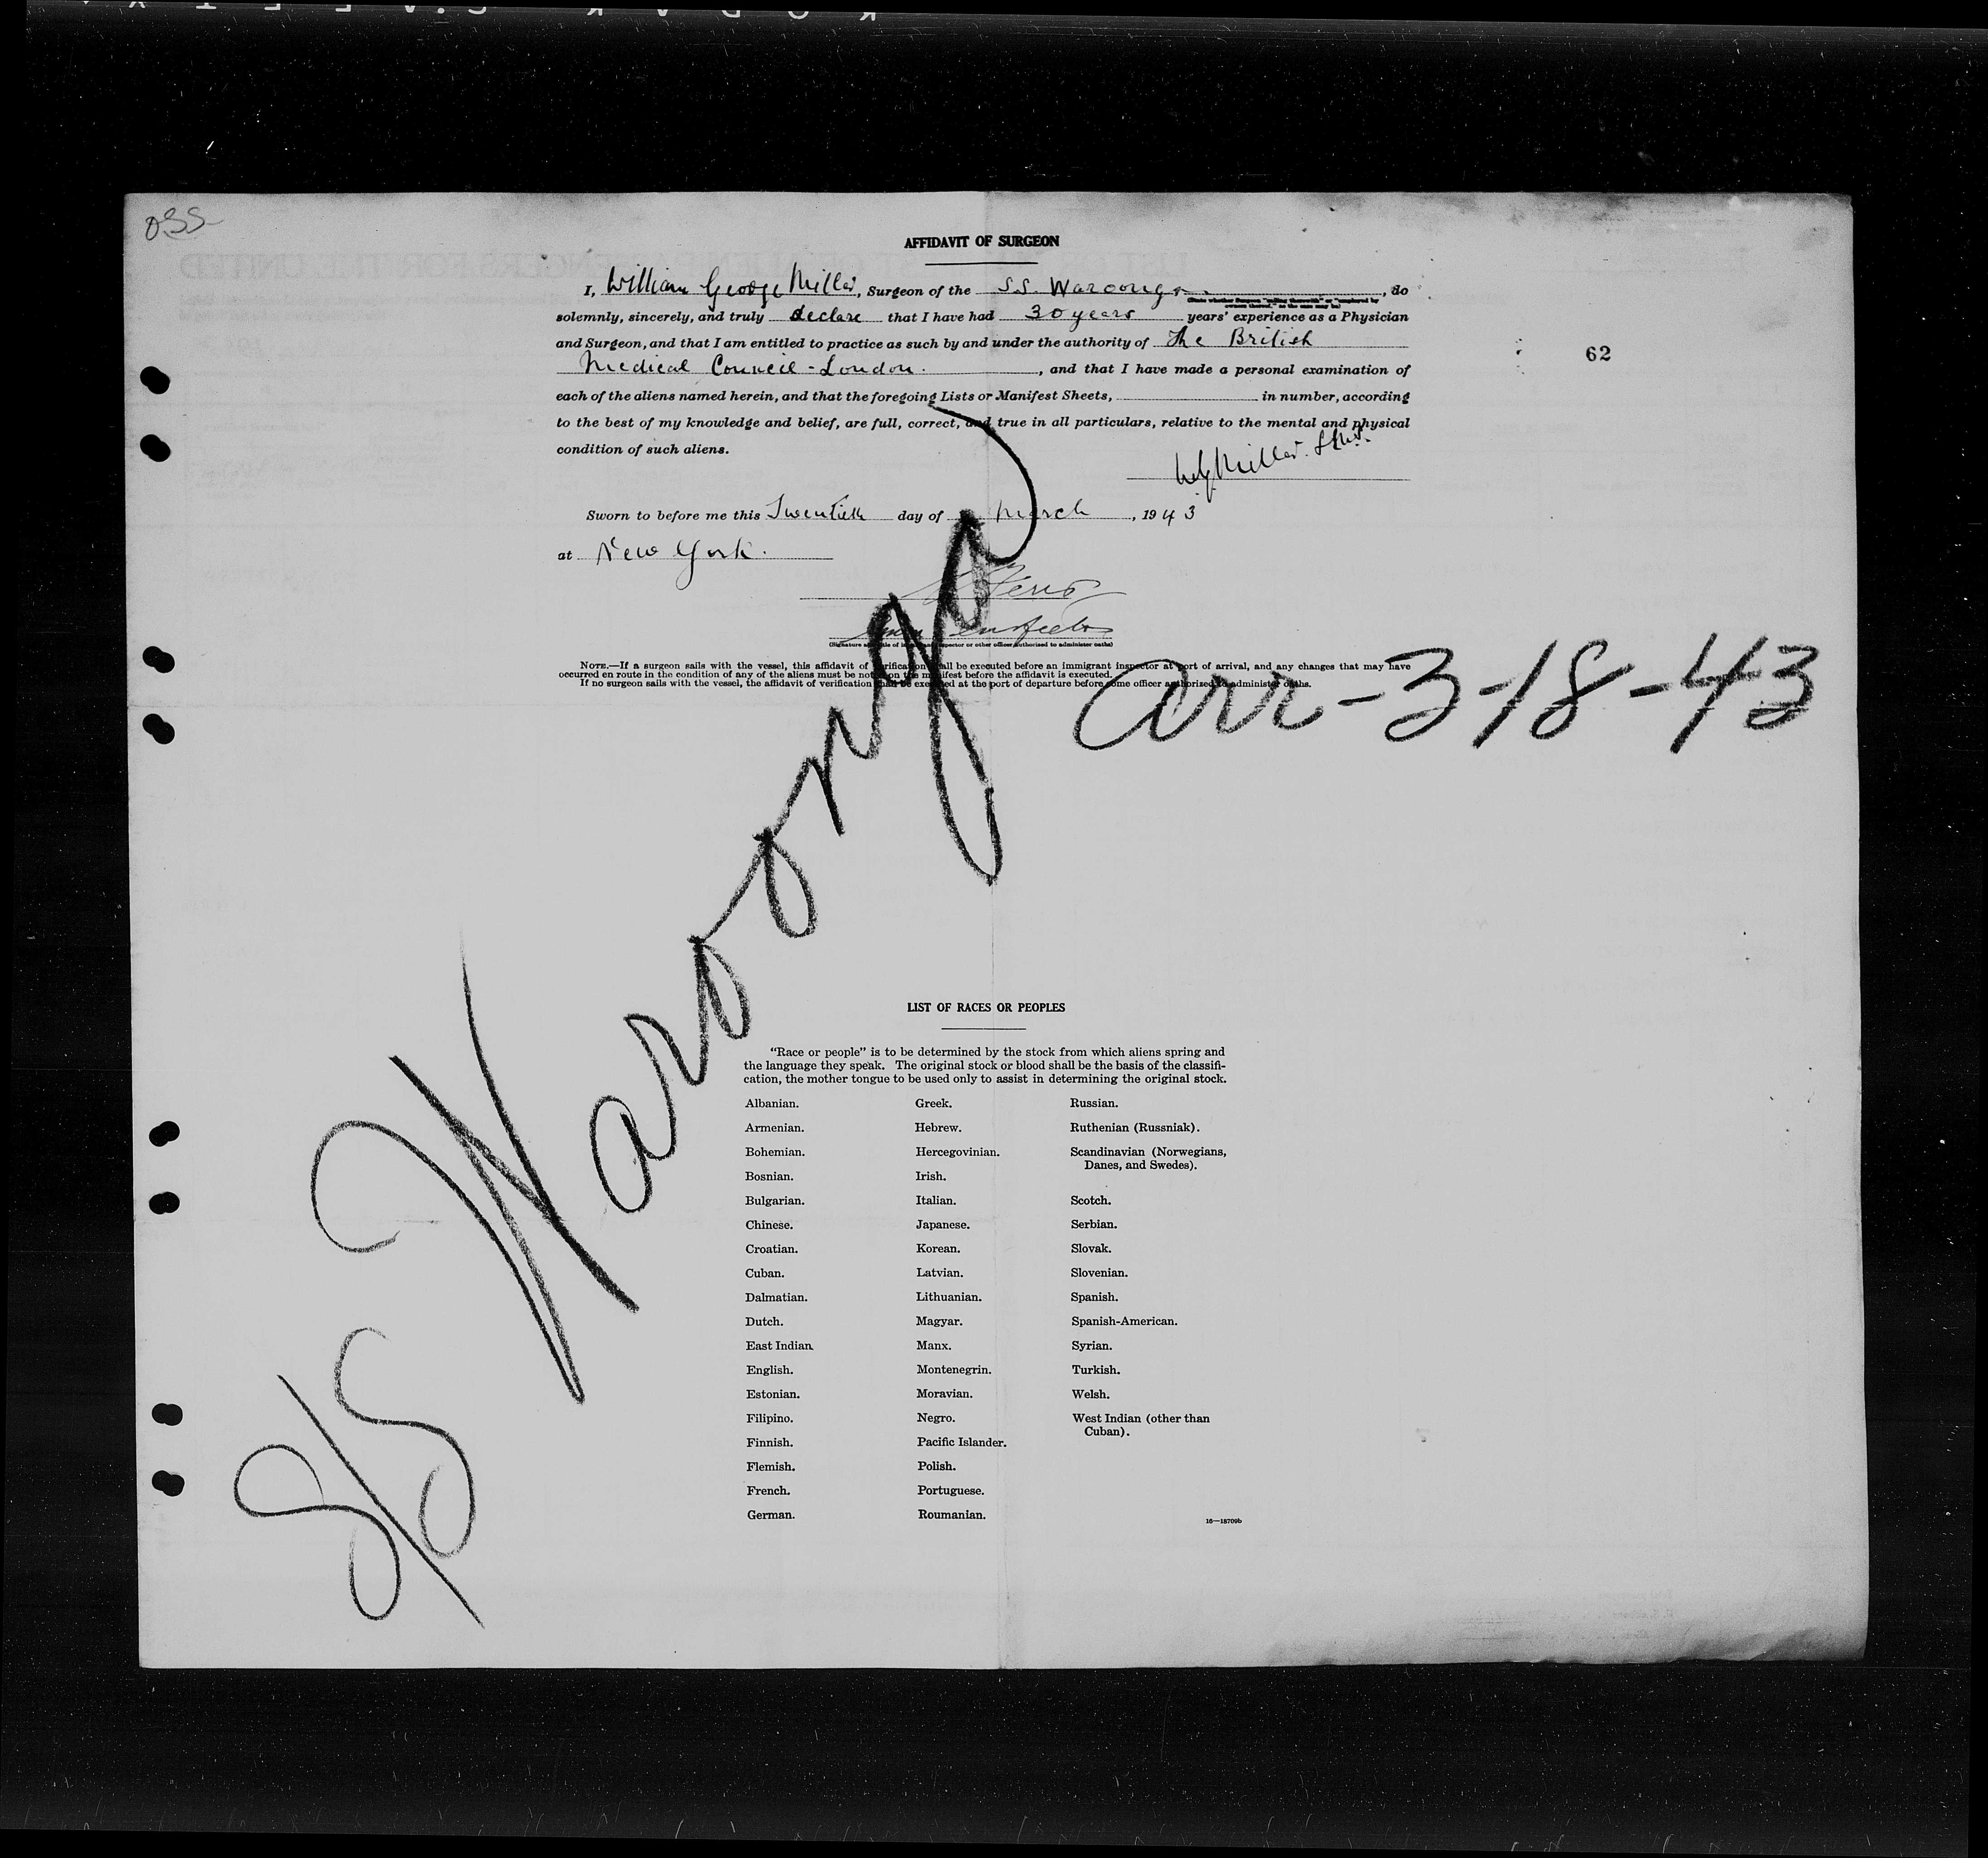 AFFIDAVIT OF SURGEON
I, William George Miller, Surgeon of the S.S. Waroonga, do
solemnly, sincerely, and truly declare that I have had 30 years years' experience as a Physician
and Surgeon, and that I am entitled to practice as such by and under the authority of The British
Medical Council - London., and that I have made a personal examination of
each of the aliens named herein, and that the foregoing Lists or Manifest Sheets, in number, according
to the best of my knowledge and belief, are full, correct, and true in all particulars, relative to the mental and physical
condition of such aliens.
W.G. Miller
Sworn to before me this Twentieth day of March, 1943
at New York.
NOTE.—If a surgeon sails with the vessel, this affidavit of verification shall be executed before an immigrant inspector at port of arrival, and any changes that may have
occurred en route in the condition of any of the aliens must be noted on the manifest before the affidavit is executed.
If no surgeon sails with the vessel, the affidavit of verification shall be executed at the port of departure before some officer authorized to administer oaths.
62
arr-3-18-43
S/S Waroonga
LIST OF RACES OR PEOPLES
"Race or people" is to be determined by the stock from which aliens spring and
the language they speak. The original stock or blood shall be the basis of the classifi-
cation, the mother tongue to be used only to assist in determining the original stock.
Albanian.
Armenian.
Bohemian.
Bosnian.
Bulgarian.
Chinese.
Croatian.
Cuban.
Dalmatian.
Dutch.
East Indian.
English.
Estonian.
Filipino.
Finnish.
Flemish.
French.
German.
Greek.
Hebrew.
Hercegovinian.
Irish.
Italian.
Japanese.
Korean.
Latvian.
Lithuanian.
Magyar.
Manx.
Montenegrin.
Moravian.
Negro.
Pacific Islander.
Polish.
Portuguese.
Roumanian.
Russian.
Ruthenian (Russniak).
Scandinavian (Norwegians,
Danes, and Swedes).
Scotch.
Serbian.
Slovak.
Slovenian.
Spanish.
Spanish-American.
Syrian.
Turkish.
Welsh.
West Indian (other than
Cuban).
16—18709b